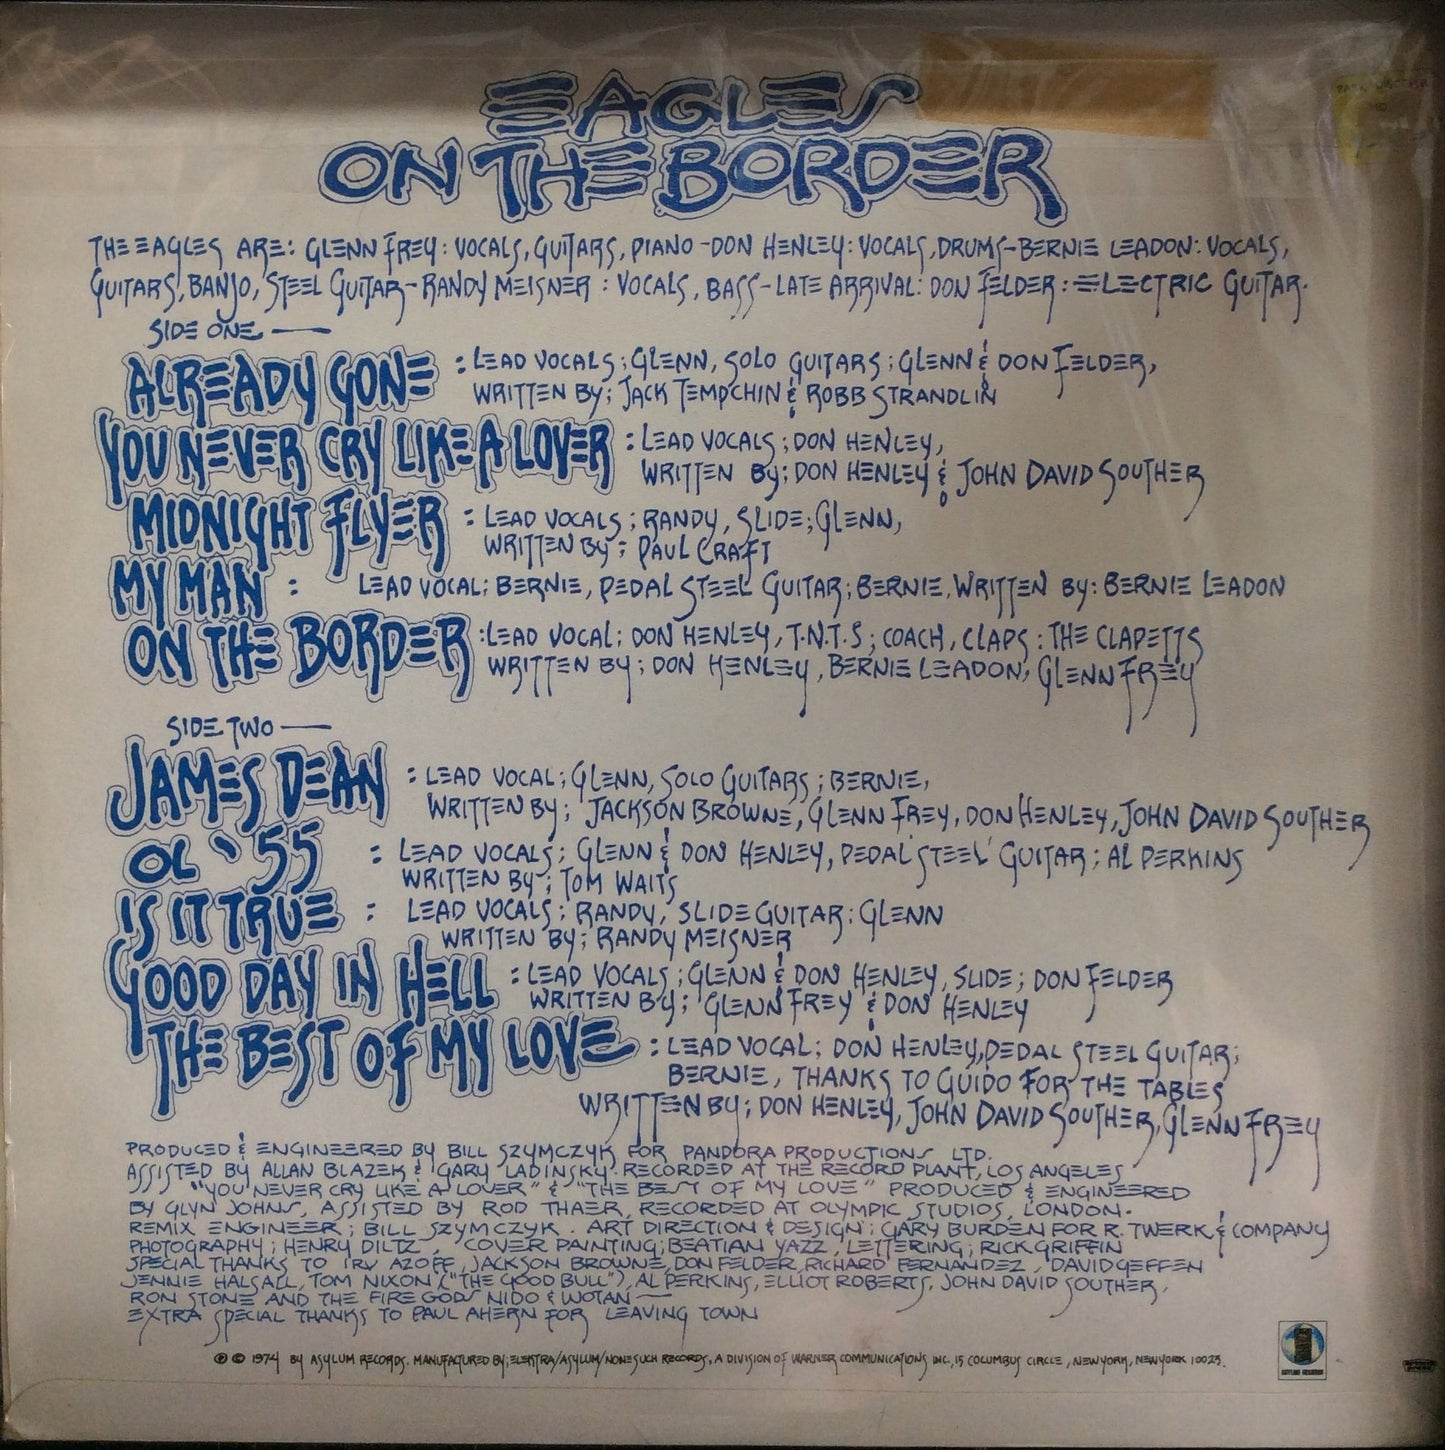 EAGLES
ON THE BORDER
THE EAGLES ARE: GLENN FREY: VOCALS, GUITARS, PIANO-DON HENLEY: VOCALS, DRUMS-BERNIE LEADON: VOCALS,
GUITARS, BANJO, STEEL GUITAR-RANDY MEISNER: VOCALS, BASS-LATE ARRIVAL: DON FELDER: ELECTRIC GUITAR.
SIDE ONE —
ALREADY GONE : LEAD VOCALS; GLENN, SOLO GUITARS; GLENN & DON FELDER,
WRITTEN BY; JACK TEMPCHIN & ROBB STRANDLIN
YOU NEVER CRY LIKE A LOVER : LEAD VOCALS; DON HENLEY,
WRITTEN BY; DON HENLEY & JOHN DAVID SOUTHER
MIDNIGHT FLYER : LEAD VOCALS; RANDY, SLIDE; GLENN,
WRITTEN BY; PAUL CRAFT
MY MAN : LEAD VOCAL; BERNIE, PEDAL STEEL GUITAR; BERNIE, WRITTEN BY: BERNIE LEADON
ON THE BORDER : LEAD VOCAL; DON HENLEY, T.N.T.S; COACH, CLAPS: THE CLAPETTS
WRITTEN BY; DON HENLEY, BERNIE LEADON, GLENN FREY
SIDE TWO —
JAMES DEAN : LEAD VOCAL; GLENN, SOLO GUITARS; BERNIE,
WRITTEN BY; JACKSON BROWNE, GLENN FREY, DON HENLEY, JOHN DAVID SOUTHER
OL '55 : LEAD VOCALS; GLENN & DON HENLEY, PEDAL STEEL GUITAR; AL PERKINS
WRITTEN BY; TOM WAITS
IS IT TRUE : LEAD VOCALS; RANDY, SLIDE GUITAR: GLENN
WRITTEN BY; RANDY MEISNER
GOOD DAY IN HELL : LEAD VOCALS; GLENN & DON HENLEY, SLIDE; DON FELDER
WRITTEN BY; GLENN FREY & DON HENLEY
THE BEST OF MY LOVE : LEAD VOCAL; DON HENLEY, PEDAL STEEL GUITAR;
BERNIE, THANKS TO GUIDO FOR THE TABLES
WRITTEN BY; DON HENLEY, JOHN DAVID SOUTHER, GLENN FREY
PRODUCED & ENGINEERED BY BILL SZYMCZYK FOR PANDORA PRODUCTIONS LTD.
ASSISTED BY ALLAN BLAZEK & GARY LADINSKY. RECORDED AT THE RECORD PLANT, LOS ANGELES
"YOU NEVER CRY LIKE A LOVER" & "THE BEST OF MY LOVE" PRODUCED & ENGINEERED
BY GLYN JOHNS, ASSISTED BY ROD THAER, RECORDED AT OLYMPIC STUDIOS, LONDON.
REMIX ENGINEER; BILL SZYMCZYK. ART DIRECTION & DESIGN; GARY BURDEN FOR R. TWERK & COMPANY
PHOTOGRAPHY; HENRY DILTZ, COVER PAINTING; BEATIAN YAZZ, LETTERING; RICK GRIFFIN
SPECIAL THANKS TO IRV AZOFF, JACKSON BROWNE, DON FELDER, RICHARD FERNANDEZ, DAVID GEFFEN
JENNIE HALSALL, TOM NIXON ("THE GOOD BULL"), AL PERKINS, ELLIOT ROBERTS, JOHN DAVID SOUTHER,
RON STONE AND THE FIRE GODS NIDO & WOTAN —
EXTRA SPECIAL THANKS TO PAUL AHERN FOR LEAVING TOWN
℗ © 1974 BY ASYLUM RECORDS. MANUFACTURED BY; ELEKTRA/ASYLUM/NONESUCH RECORDS, A DIVISION OF WARNER COMMUNICATIONS INC., 15 COLUMBUS CIRCLE, NEW YORK, NEW YORK 10023.
ASYLUM RECORDS